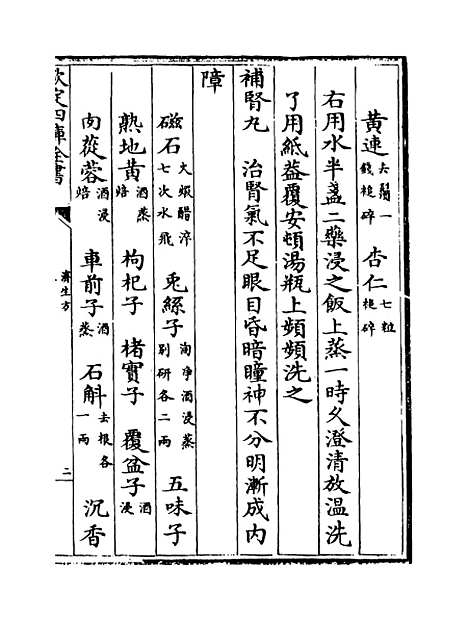 黄連去鬚一錢搥碎 杏仁七粒搥碎
右用水半盞二藥浸之飯上蒸一時久澄清放温洗
了用紙葢覆安頓湯瓶上頻頻洗之
補腎丸 治腎氣不足眼目昏暗瞳神不分明漸成内
障
磁石大煆醋淬七次水飛 兎絲子淘浄酒浸蒸别研各二兩 五味子
熟地黄酒蒸焙 枸杞子 楮實子 覆盆子酒浸
肉蓯蓉酒浸焙 車前子酒蒸 石斛去根各一兩 沉香
欽定四庫全書
濟生方
二